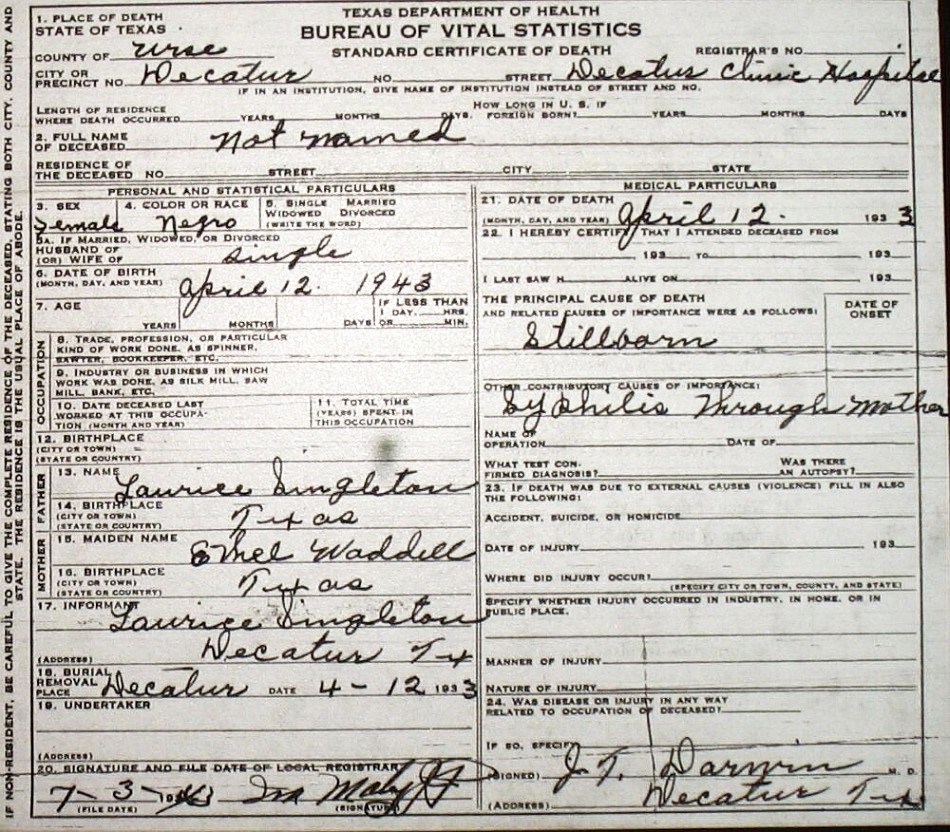 TEXAS DEPARTMENT OF HEALTH
BUREAU OF VITAL STATISTICS
STANDARD CERTIFICATE OF DEATH
1. PLACE OF DEATH
STATE OF TEXAS
COUNTY OF Wise REGISTRAR'S NO
CITY OR
PRECINCT NO. Decatur NO. STREET Decatur Clinic Hospital
IF IN AN INSTITUTION, GIVE NAME OF INSTITUTION INSTEAD OF STREET AND NO.
LENGTH OF RESIDENCE
WHERE DEATH OCCURRED YEARS MONTHS DAYS. HOW LONG IN U. S. IF FOREIGN BORN? YEARS MONTHS DAYS
2. FULL NAME
OF DECEASED Not named
RESIDENCE OF
THE DECEASED NO. STREET CITY STATE
PERSONAL AND STATISTICAL PARTICULARS
3. SEX Female 4. COLOR OR RACE Negro 5. SINGLE MARRIED WIDOWED DIVORCED (WRITE THE WORD)
5A. IF MARRIED, WIDOWED, OR DIVORCED
HUSBAND OF
(OR) WIFE OF single
6. DATE OF BIRTH
(MONTH, DAY, AND YEAR) April 12. 1943
7. AGE YEARS MONTHS DAYS IF LESS THAN 1 DAY, HRS. OR MIN.
OCCUPATION
8. TRADE, PROFESSION, OR PARTICULAR
KIND OF WORK DONE, AS SPINNER,
SAWYER, BOOKKEEPER, ETC.
9. INDUSTRY OR BUSINESS IN WHICH
WORK WAS DONE, AS SILK MILL, SAW
MILL, BANK, ETC.
10. DATE DECEASED LAST
WORKED AT THIS OCCUPA-
TION (MONTH AND YEAR)
11. TOTAL TIME
(YEARS) SPENT IN
THIS OCCUPATION
12. BIRTHPLACE
(CITY OR TOWN)
(STATE OR COUNTRY)
FATHER
13. NAME Laurice Singleton
14. BIRTHPLACE
(CITY OR TOWN)
(STATE OR COUNTRY) Texas
MOTHER
15. MAIDEN NAME Ethel Waddell
16. BIRTHPLACE
(CITY OR TOWN)
(STATE OR COUNTRY) Texas
17. INFORMANT Laurice Singleton
(ADDRESS) Decatur Tx
18. BURIAL
REMOVAL
PLACE Decatur DATE 4-12 1933
19. UNDERTAKER
(ADDRESS)
20. SIGNATURE AND FILE DATE OF LOCAL REGISTRAR
7-3-1943 Ira
(FILE DATE) (SIGNATURE)
MEDICAL PARTICULARS
21. DATE OF DEATH
(MONTH, DAY, AND YEAR) April 12. 1933
22. I HEREBY CERTIFY THAT I ATTENDED DECEASED FROM
193 TO 193
I LAST SAW H ALIVE ON 193
THE PRINCIPAL CAUSE OF DEATH
AND RELATED CAUSES OF IMPORTANCE WERE AS FOLLOWS:
DATE OF
ONSET
Stillborn
OTHER CONTRIBUTORY CAUSES OF IMPORTANCE:
Syphilis Through Mother
NAME OF
OPERATION DATE OF
WHAT TEST CON-
FIRMED DIAGNOSIS? WAS THERE AN AUTOPSY?
23. IF DEATH WAS DUE TO EXTERNAL CAUSES (VIOLENCE) FILL IN ALSO
THE FOLLOWING:
ACCIDENT, SUICIDE, OR HOMICIDE
DATE OF INJURY 193
WHERE DID INJURY OCCUR?
(SPECIFY CITY OR TOWN, COUNTY, AND STATE)
SPECIFY WHETHER INJURY OCCURRED IN INDUSTRY, IN HOME, OR IN
PUBLIC PLACE.
MANNER OF INJURY
NATURE OF INJURY
24. WAS DISEASE OR INJURY IN ANY WAY
RELATED TO OCCUPATION OF DECEASED?
IF SO, SPECIFY
(SIGNED) J. T. Darwin M. D.
(ADDRESS) Decatur Tex
IF NON-RESIDENT, BE CAREFUL TO GIVE THE COMPLETE RESIDENCE OF THE DECEASED, STATING BOTH CITY, COUNTY AND
STATE. THE RESIDENCE IS THE USUAL PLACE OF ABODE.